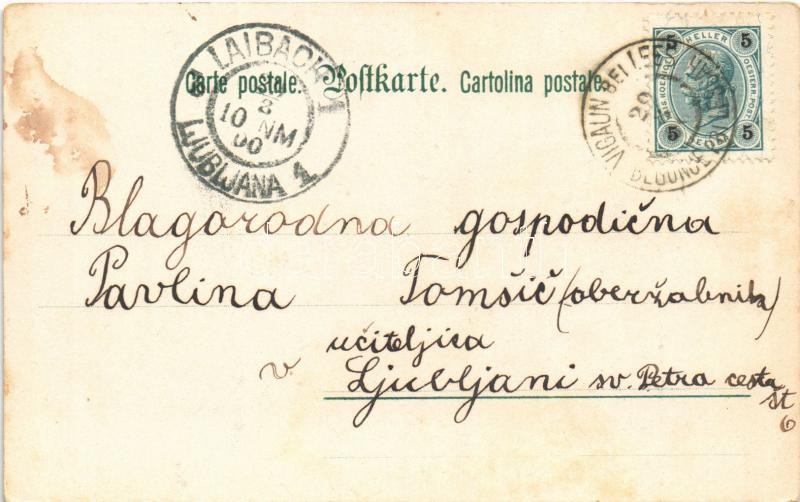 LAIBACH 1
8
10 NM
00
LJUBLJANA 1
Carte postale. Postkarte. Cartolina postale.
VIGAUN BEI LEES
29
BEGUNJE
5 HELLER 5
OESTERR. POST
5 5
Blagorodna gospodična
Pavlina Tomšič (oberžabnik)
učiteljica
v Ljubljani sv. Petra cesta
št
6